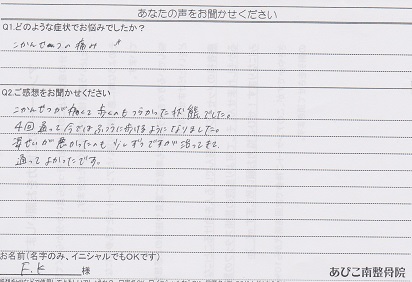 あなたの声をお聞かせください
Q1.どのような症状でお悩みでしたか？
こかんせつの痛み
Q2.ご感想をお聞かせください
こかんせつが痛くて歩くのもつらかった状態でした。
4回通って今ではふつうに歩けるようになりました。
姿せいが悪かったのも少しずつですが治ってきて
通ってよかったです。
お名前（名字のみ、イニシャルでもOKです）
F.K 様
あびこ南整骨院